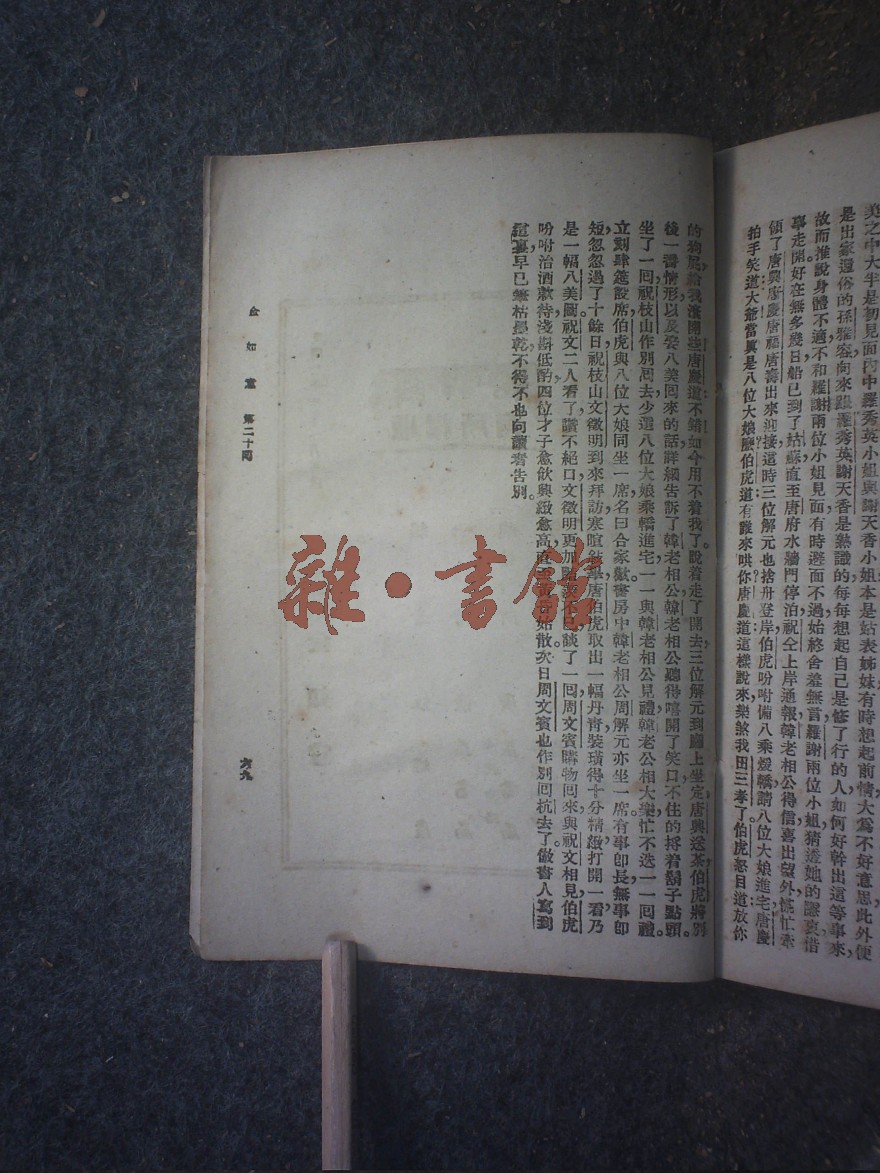 美之中大半是初見面內中羅秀英小姐與謝天香小姐本是姑表姊妹有時想起前情大爲不好意思此外便
是出家還俗的孫雅容向來跟羅秀英謝天香是熟識的每每想起自己是修了行的人如何好幹出這等事來
故而推說身體不適不和羅謝兩位小姐見面有時遮面不過始終含羞無言羅謝兩位小姐猜透她的
舉走開好在無多幾日船已到了姑蘇直至唐府水牆門停泊祝仝上岸通報韓老相公得信喜出望外慌忙牽
領了唐興唐慶唐福唐壽出來迎接這時三位解元也捨舟登岸伯虎吩咐備八乘煖轎請八位大娘進宅唐慶
拍手笑道大爺當眞是八位大娘麽伯虎道有誰來哄你唐慶道這樣說來樂煞我田三孝了伯虎怒目道放你
的狗屁給我滾開些唐慶道不錯如今用不着我了說着走了開去三位解元到廳上坐定唐興送茶伯虎將別
後一番情形以及娶八美同來的話詳細告訴了韓老相公韓老相公聽得嘻開了笑口不住的捋着鬍子點頭
坐了一回祝枝山作別周去少選八位大娘乘轎進宅一一與韓老相公見禮韓老公相大樂忙不迭一一回禮
立刻肆筵設席伯虎與八位大娘同坐一席名曰合家歡書房中韓老相公周解元亦坐一席有事卽長無事卽
短忽忽過了十餘日祝枝山文徵明到來拜訪寒暄旣畢唐伯虎取出一幅丹靑裝璜得十分精緻打開一看乃
是一幅八美圖祝文二人看了讚不絕口文徵明更加談了一回周文賓購物回來與祝文相見伯虎
吩咐治酒款待淺斟低酌四位才子愈飮興緻愈高直至始散次日周文賓也作別回杭去了做書人寫到
這裏早已筆枯墨乾不得不也向讀者告別。
金如意 第二十回
六九
雜·書館